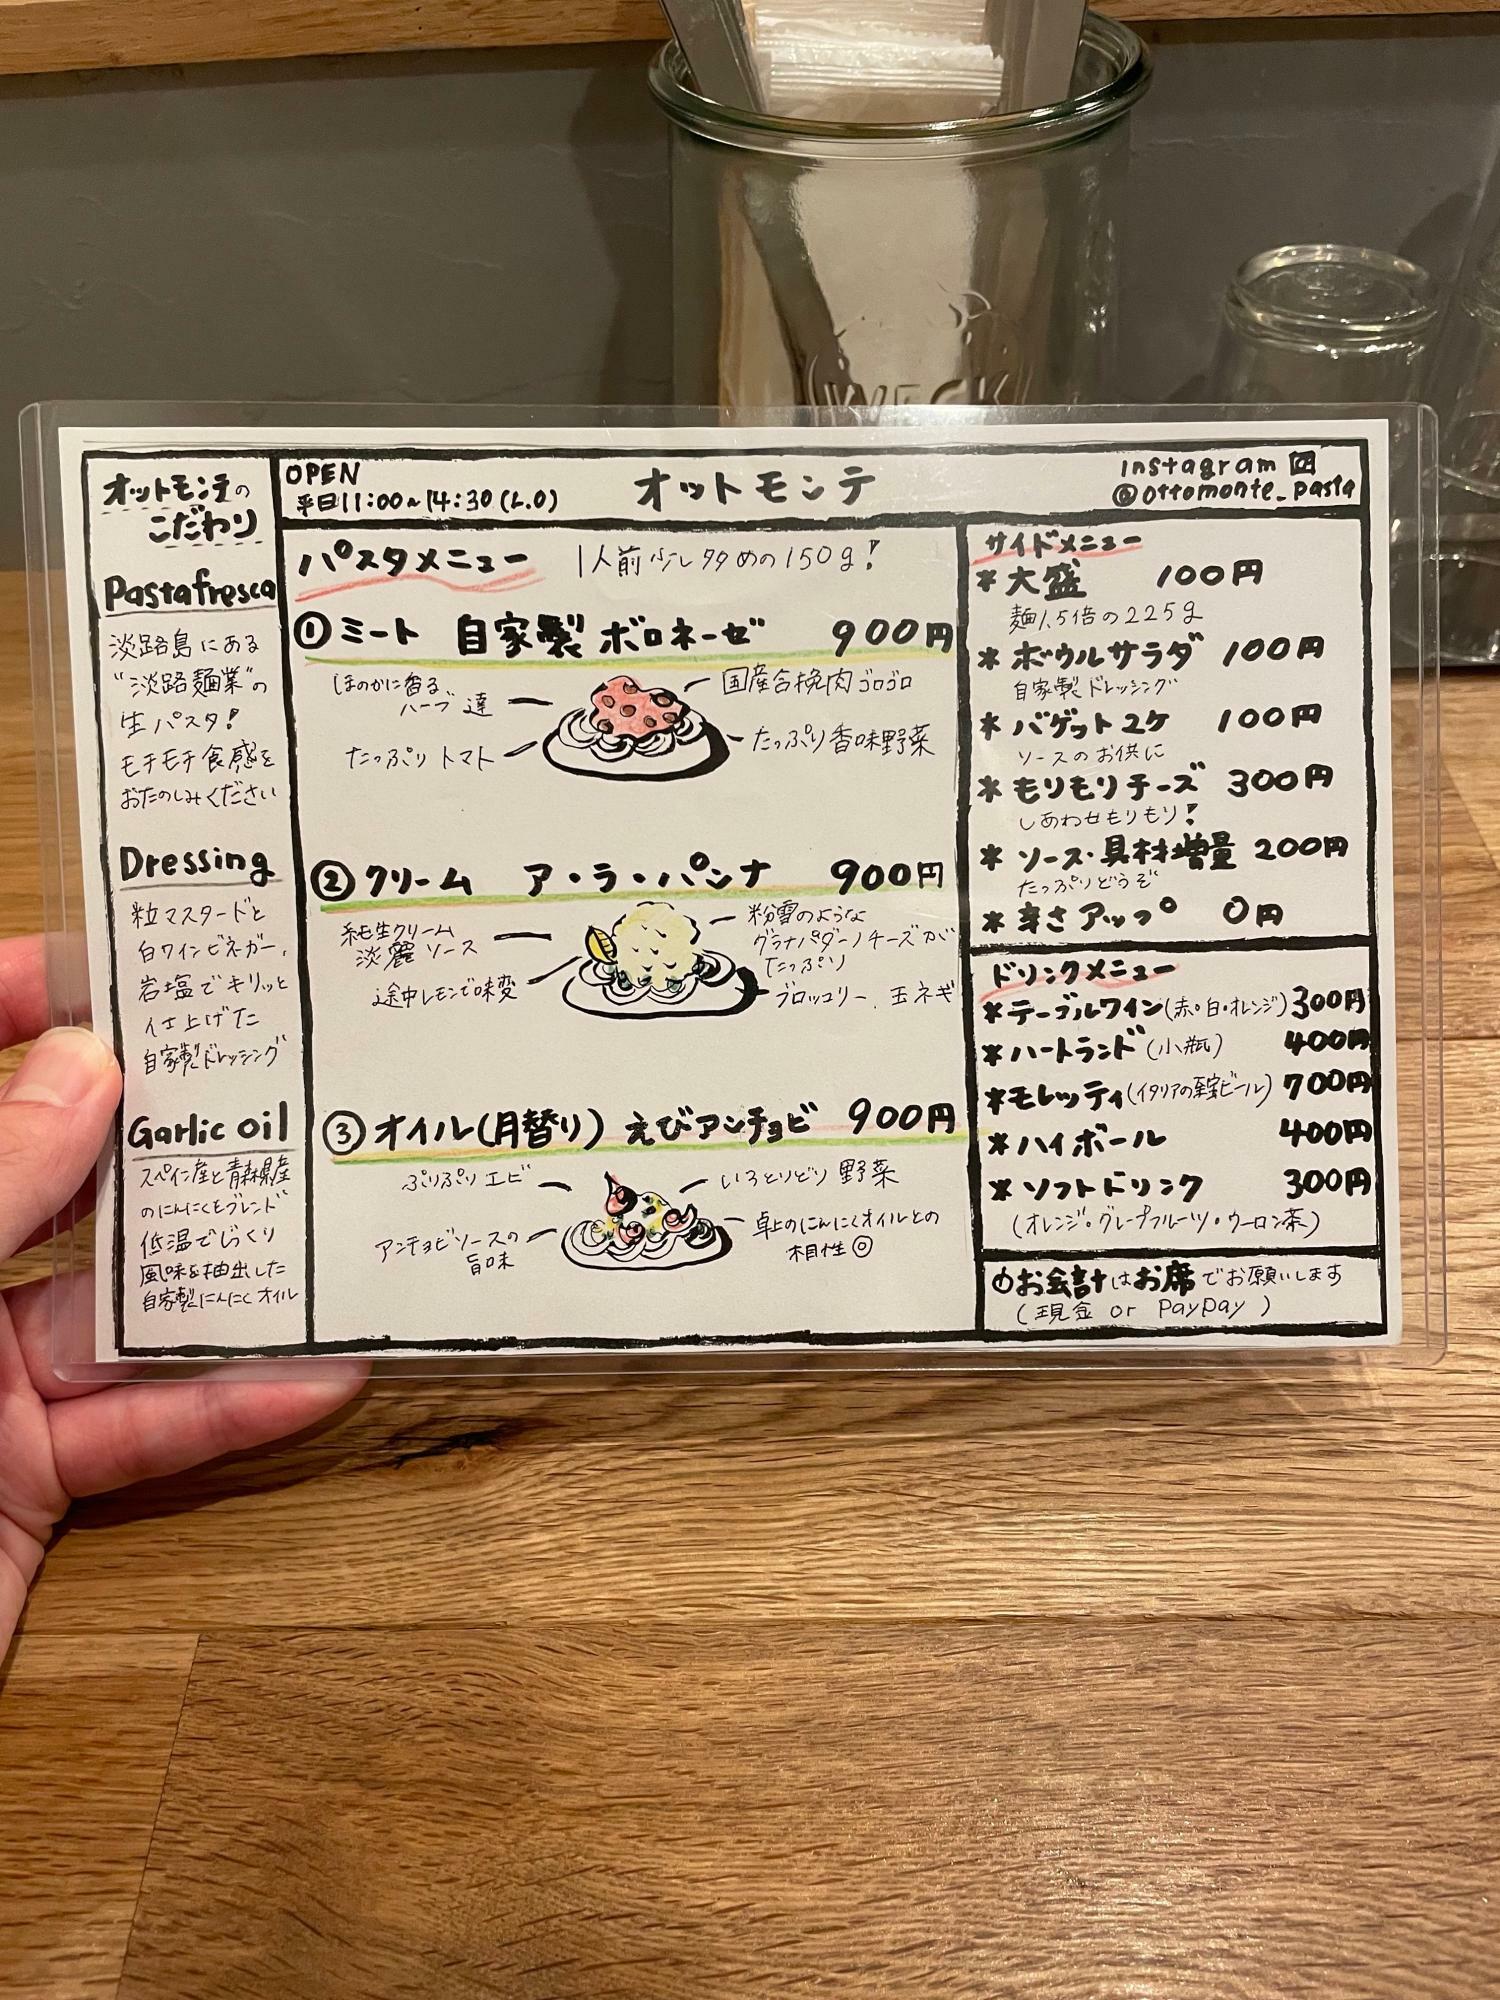 オットモンテの
こだわり
Pastafresca
淡路島にある
"淡路麺業"の
生パスタ!
モチモチ食感を
おたのしみください
Dressing
粒マスタードと
白ワインビネガー、
岩塩でキリッと
仕上げた
自家製ドレッシング
Garlic oil
スペイン産と青森県産
のにんにくをブレンド
低温でじっくり
風味を抽出した
自家製にんにくオイル
OPEN
平日11:00~14:30(L.O)
オットモンテ
instagram
@ottomonte_pasta
パスタメニュー 1人前少し多めの150g!
①ミート 自家製ボロネーゼ 900円
ほのかに香る
ハーブ達
たっぷりトマト
国産合挽肉ゴロゴロ
たっぷり香味野菜
②クリーム ア・ラ・パンナ 900円
純生クリーム
淡麗ソース
途中レモンで味変
粉雪のような
グラナパダーノチーズが
たっぷり
ブロッコリー、玉ネギ
③オイル(月替り) えびアンチョビ 900円
ぷりぷりエビ
アンチョビソースの
旨味
いろとりどり野菜
卓上のにんにくオイルとの
相性◎
サイドメニュー
*大盛 100円
麺1.5倍の225g
*ボウルサラダ 100円
自家製ドレッシング
*バゲット2ケ 100円
ソースのお供に
*もりもりチーズ 300円
しあわせもりもり!
*ソース・具材増量 200円
たっぷりどうぞ
*辛さアップ 0円
ドリンクメニュー
*テーブルワイン(赤・白・オレンジ) 300円
*ハートランド(小瓶) 400円
*モレッティ(イタリアの至宝ビール) 700円
*ハイボール 400円
*ソフトドリンク 300円
(オレンジ・グレープフルーツ・ウーロン茶)
お会計はお席でお願いします
(現金 or PayPay)
WECK